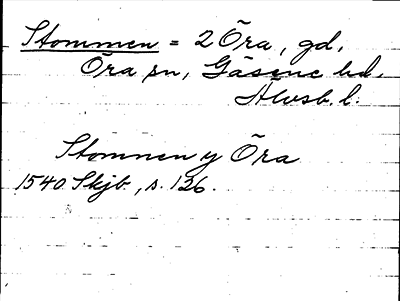 Stommen = 2 Öra, gd,
Öra sn, Gäsene hd.
Älvsb. l.
Stomnen y Öra
1540 Skjb, s. 126.